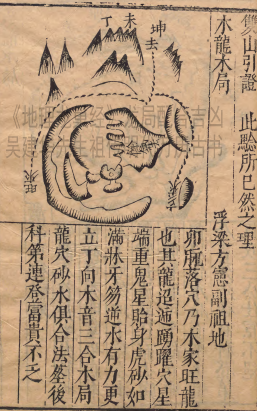 雙山引證 此驗所已然之理
木龍木局 浮梁方憲副祖地
坤去
未
丁
亥來
卯脈落穴乃木家旺龍
也其龍迢遞踴躍穴星
端重鬼星貼身虎砂如
滿牀牙笏逆水有力更
立丁向木音三合木局
龍穴砂水俱合法塟後
科第連登富貴不之